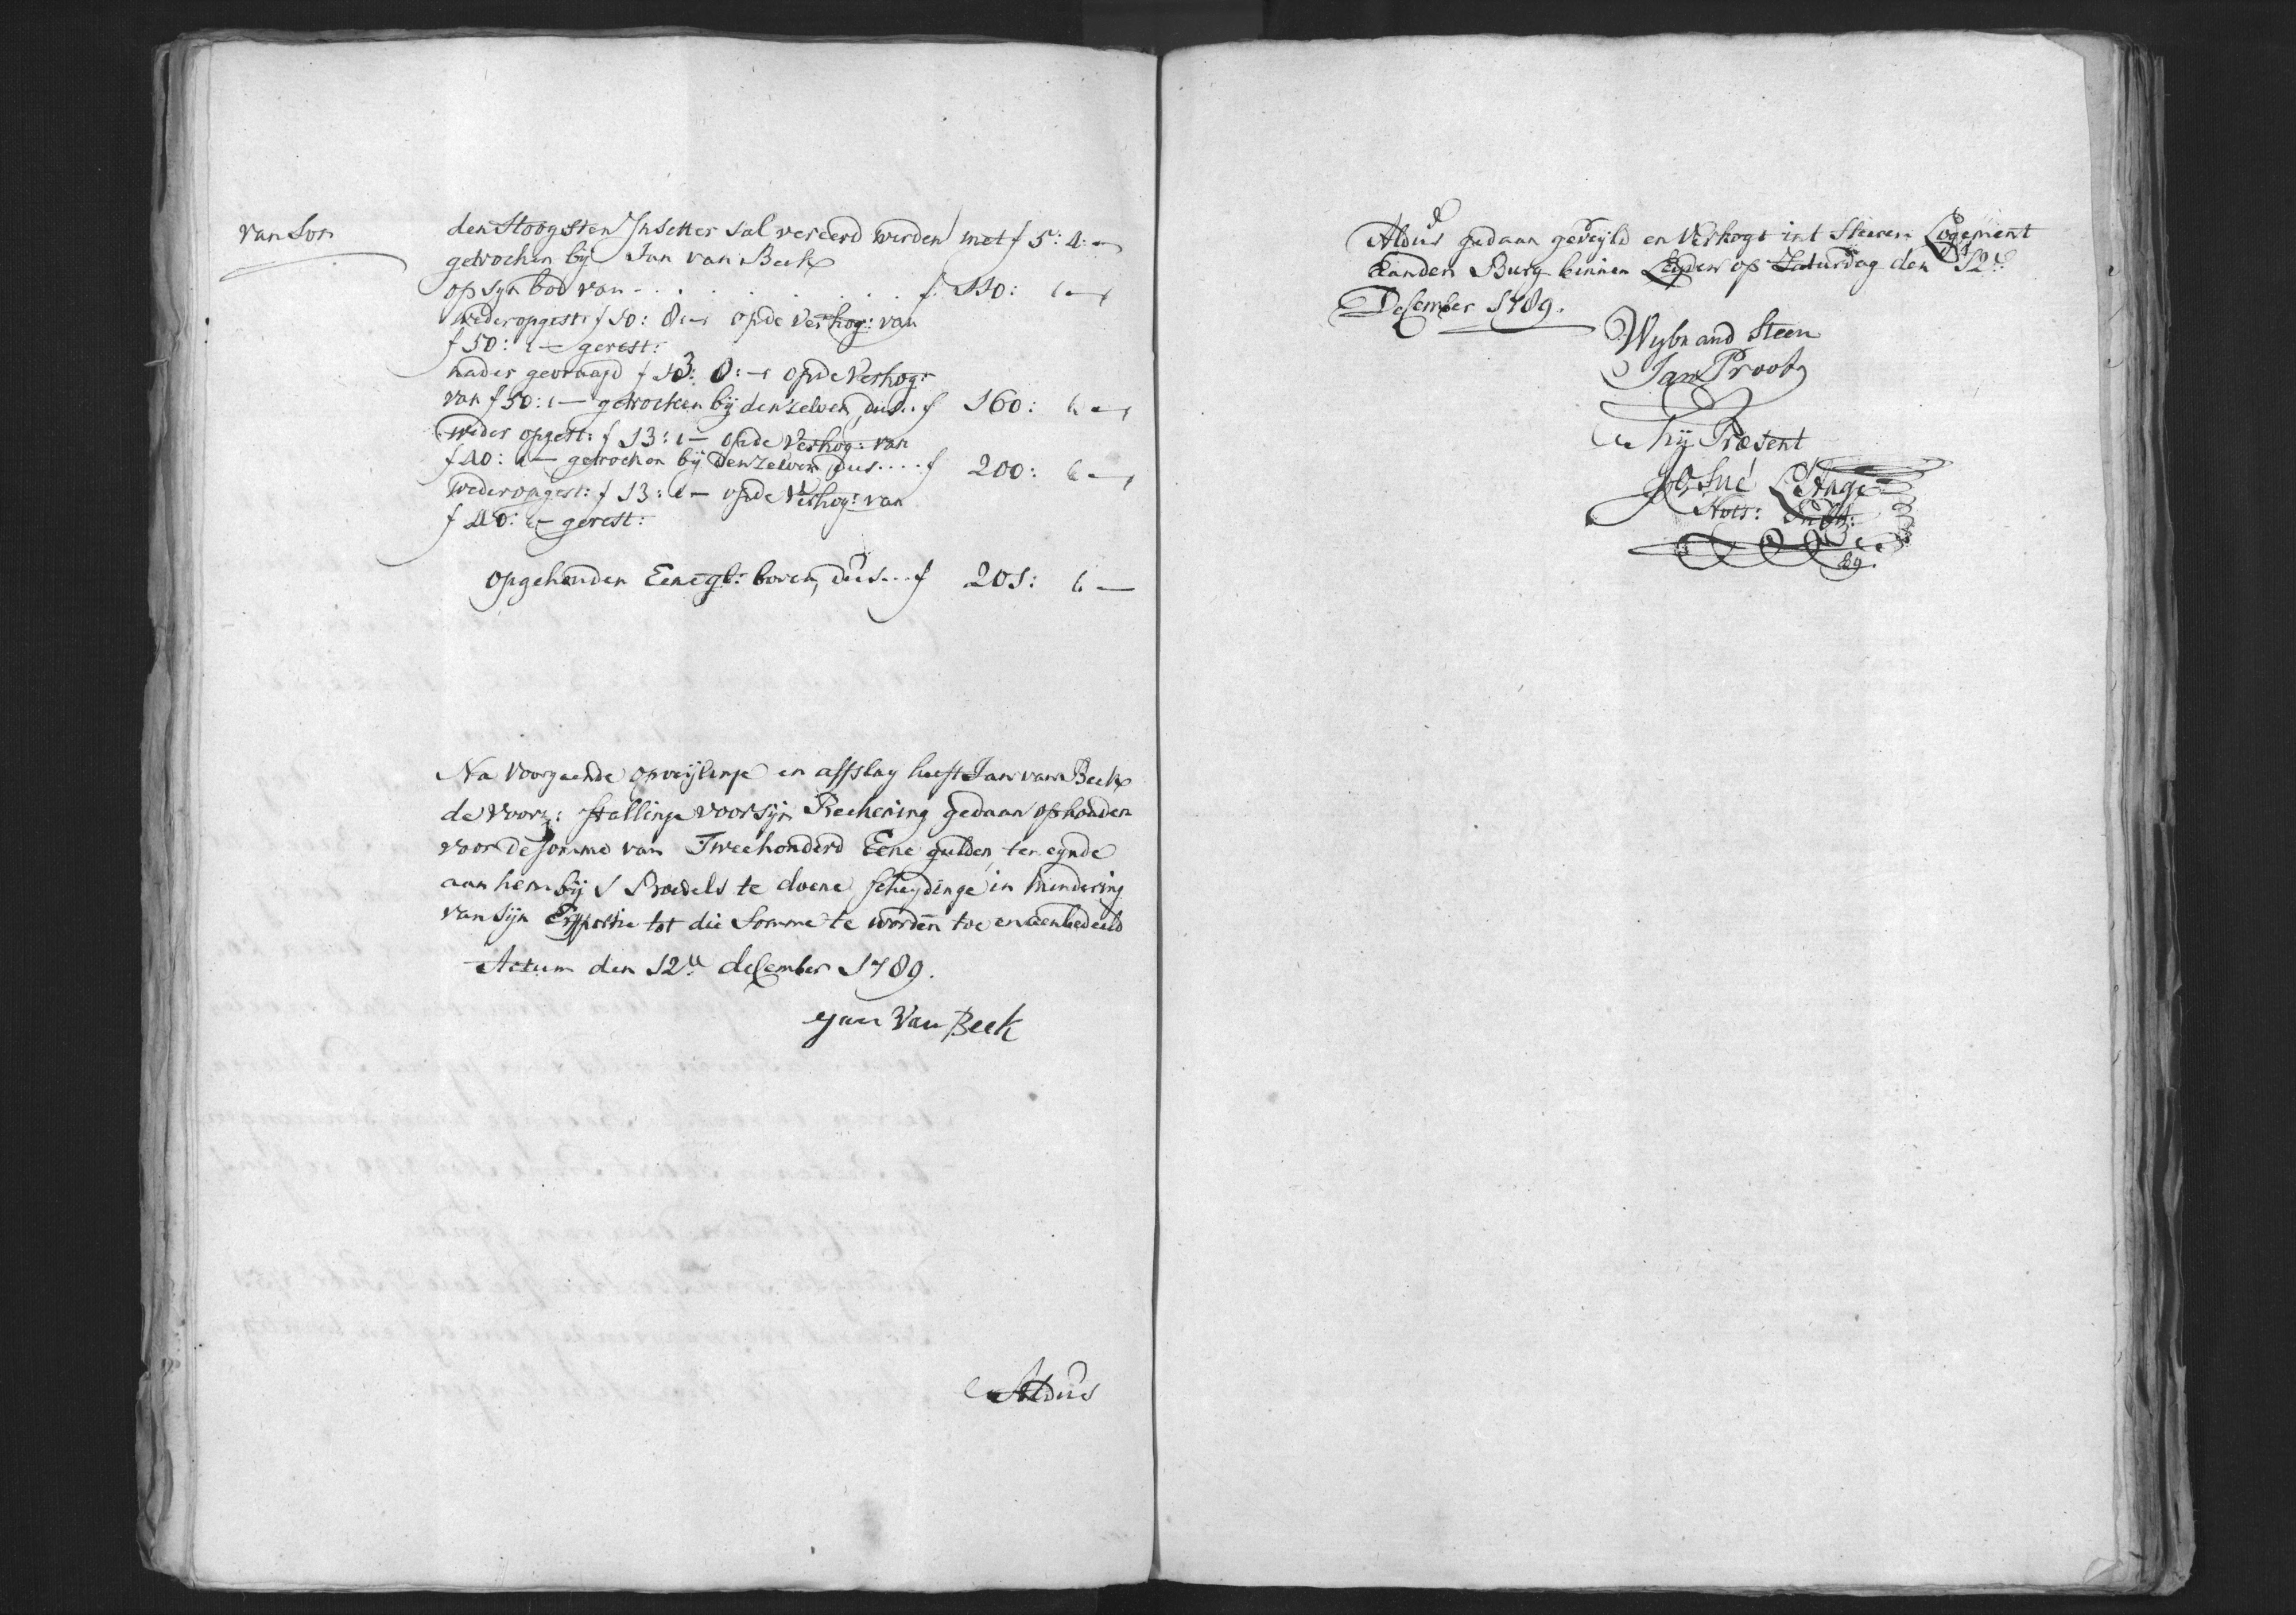 van Son
den Hoogsten Insetter sal vereerd werden met f 5: 4: —
getrocken bij Jan van Beek
op syn bod van - . . . . . . . f 110: " —
weder opgest: f 10: 8 : — op de verhog: van
f 50: " — gerest:
nader gevraagd f 13: 8: — op de Verhog:
van f 50: " — getrocken bij denzelven, dus.. f 160: " —
weder opgest: f 13: " — op de Verhog: van
f 40: " — getrocken bij denzelven, dus.... f 200: " —
weder opgest: f 13: " — op de Verhog: van
f 40: " — gerest:
opgehouden Eene gl: boven, dus... f 201: " —
Na voorgaende opveijlinge en afslag heeft Jan van Beek
de voorz: stallinge voor sijn Reekening gedaan ophouden
voor de somme van Tweehonderd Eene gulden, ten eynde
aan hem bij s Boedels te doene scheydinge in mindering
van sijn Erfportie tot die Somme te worden toe en aenbedeeld
Actum den 12e. december 1789.
Jan Van Beek
Aldus
Aldus gedaan geveijld en Verkogt int Heeren Logement
aanden Burg binnen Leyden op Zaturdag den 12e.
December 1789.
Wijbrand Steen
Jan Proot
Mij Præsent
Josué L'Ange
Nots: Publ:
1789.